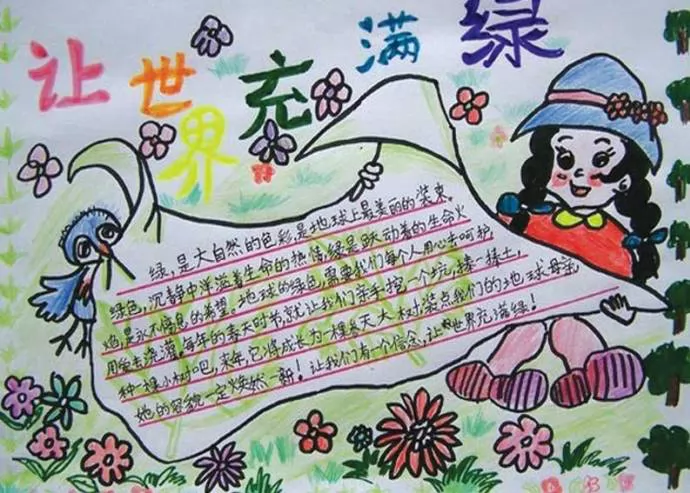 让世界充满绿
绿，是大自然的色彩，是地球上最美丽的装束。
绿色，沉静中洋溢着生命的热情，绿是跃动着的生命火
焰，是永不停息的希望。地球的绿色，需要我们每个人用心去呵护
用爱去浇灌。每年的春天时节，就让我们亲手挖一个坑，捧一抔土，
种一棵小树吧，来年，它将成长为一棵参天大树，装点我们的地球母亲，
她的容貌一定焕然一新！让我们有一个信念，让世界充满绿！